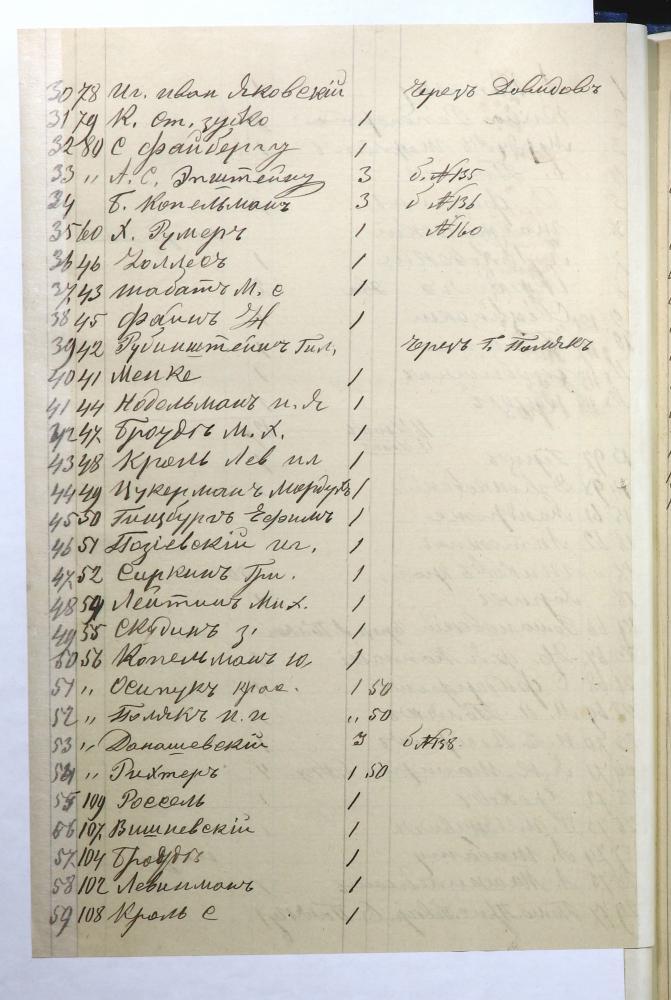 30 78 Иг. иван Яковскій Черезъ Давидовъ
31 79 К. ст. 1
32 80 С файбергу 1
33 " А. С. Эпштейну 3 б. №135
34 Б. Копельманъ 3 б №136
35 60 Х. Румеръ 1 №160
36 46 Чоллесъ 1
37 43 шабатъ М. с 1
38 45 файнъ 1
39 42 Рубинштейнъ Гил. Черезъ Г. Полякъ
40 41 Менке 1
41 44 Нобельманъ И. Я 1
42 47 Броудъ М. Х. 1
43 48 Кроль Лев 1
44 49 Цукерманъ Мордухъ 1
45 50 Гинзбургъ Ефимъ 1
46 51 Позіевскій иг. 1
47 52 Сиркинъ Гри. 1
48 54 Лейтинъ Мих. 1
49 55 Скудинъ З. 1
50 56 Копельманъ Ю 1
51 " Осипукъ 1 50
52 " Полякъ И. И " 50
53 " Данашевскій 3 б №138
54 " Рихтеръ 1 50
55 109 Россель 1
56 107 Вишневскій 1
57 104 Броудъ 1
58 102 Левинманъ 1
59 108 Кроль С 1